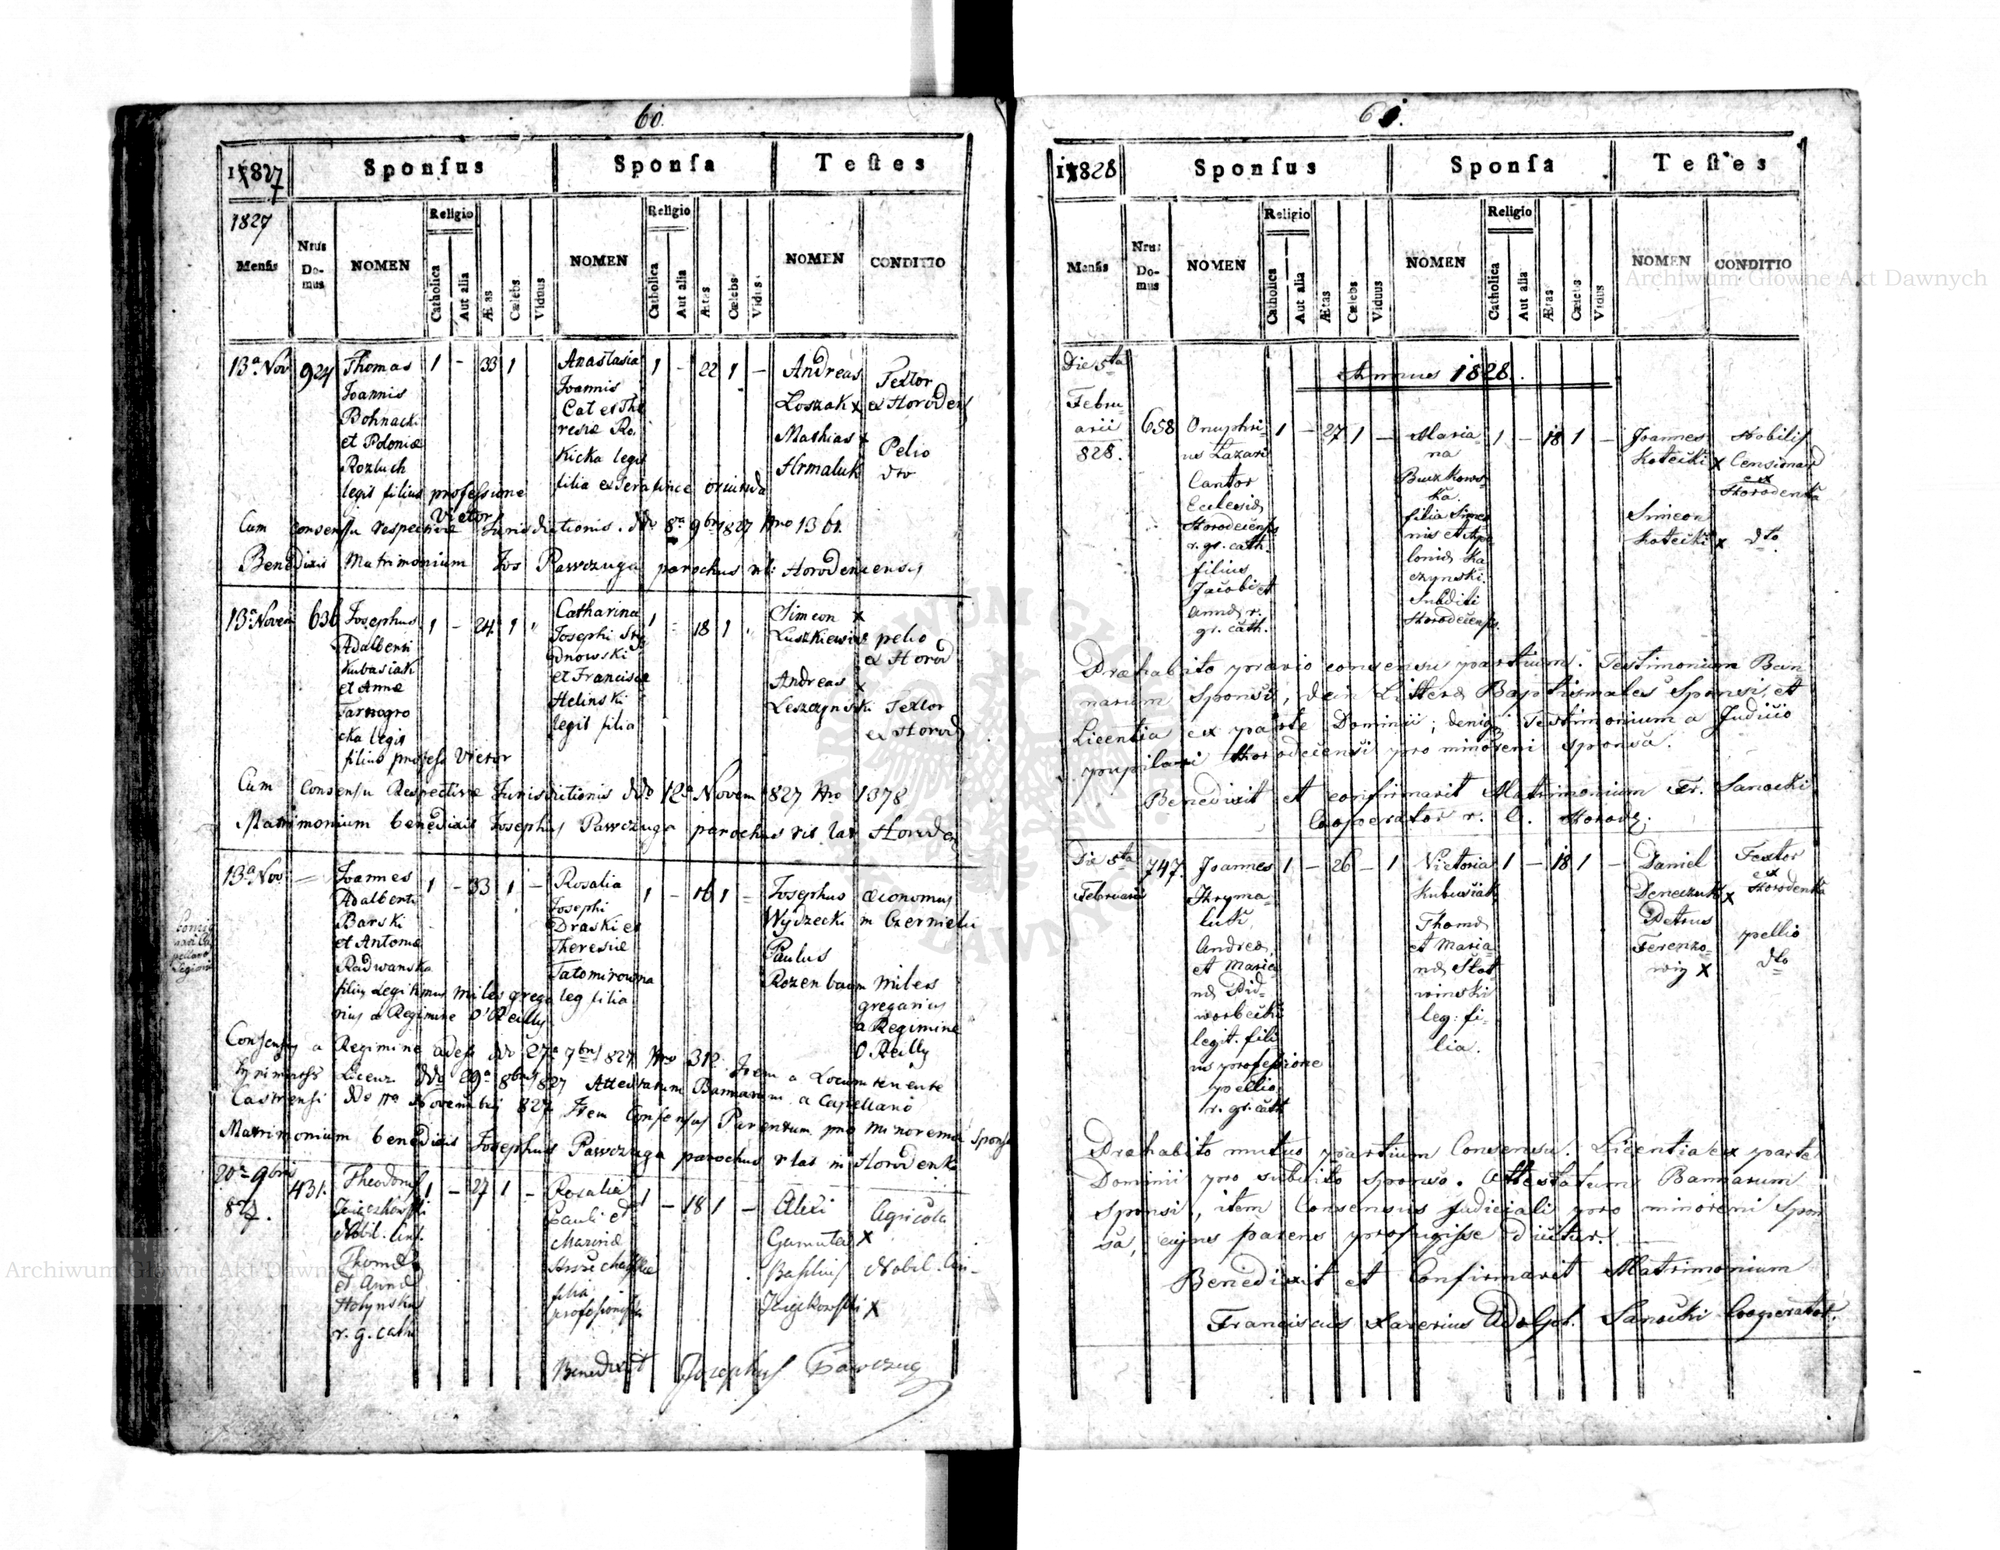 60.
1827
Sponſus
Sponſa
Teſtes
1827
Menſis
Nrus Domus
NOMEN
Religio
Catholica
Aut alia
Ætas
Cœlebs
Viduus
NOMEN
Religio
Catholica
Aut alia
Ætas
Cœlebs
Vidua
NOMEN
CONDITIO
13ª Nov
924
Thomas
Joannis
Bohnacki
et Poloniæ
Rozluch
legit filius professione
Victor
1 - 33 1
Anastasia
Joannis
Cat et The
resiæ Ro
kicka legit
filia ex Serafince oriunda
1 - 22 1 -
Andreas
Loszak x
Mathias +
Hrmaluk
Textor
ex Horoden
Pelio
dto
Cum consensu respective Jurisdictionis ddo 8ª 9bris 1827 Nro 1361.
Benedixit Matrimonium Jos Pawczuga parochus r. l. Horodencensis
13ª Novem
636
Josephus
Adalberti
Kubasiak
et Annæ
Tarnogro
cka legit
filius profess Victor
1 - 24 1
Catharina
Josephi
dnowski
et Francisca
Helinski
legit filia
1 - 18 1
Simeon x
Luszkiewicz
Andreas x
Leszczynski
pelio
ex Horod
Textor
ex Horod
Cum Consensu Respective Jurisdictionis ddo 12ª Novem 827 Nro 1378
Matrimonium benedixit Josephus Pawczuga parochus rit. lat Horoden
13ª Nov
Joannes
Adalberti
Barski
et Antoniæ
Radwanska
filius Legitimus miles grega
rius a Regimine O'Reilly
1 - 33 1 -
Rosalia
Josephi
Draski et
Theresiæ
Tatomirowna
leg filia
1 - 16 1 -
Josephus
Wydzecki
Paulus
Rozenbaum
œconomus
in Czernielii
miles
gregarius
a Regimine
O Reilly
Consensus a Regimine adest ddo 27ª 7bris 827 Nro 312. Item a Locumtenente
Licenz ddo 29ª 8bris 827 Attestatum Bannarum a Capellano
Castrensi ddo 11ª Novembris 827 Item Consensus Parentum pro minorena Sponsa
Matrimonium benedixit Josephus Pawczuga parochus r lat in Horodenka
20ª 9bris
827.
431.
Theodorus
Nobil.
Thomæ
et Annæ
Holynska
r. g. cath
1 - 27 1 -
Rosalia
Pauli et
Marinæ
filia
1 - 18 1 -
Alexi
Gamuta x
Basilius
Agricola
Nobil.
x
Benedixit Josephus Pawczuga
61.
1828
Sponſus
Sponſa
Teſtes
Menſis
Nrus Domus
NOMEN
Religio
Catholica
Aut alia
Ætas
Cœlebs
Viduus
NOMEN
Religio
Catholica
Aut alia
Ætas
Cœlebs
Vidua
NOMEN
CONDITIO
Annus 1828.
Die 5ta
Febru-
arii
828.
658
Onuphri-
us Lazari
Cantor
Ecclesiæ
Horodecensis
r. gr. cath.
filius
Jacobi et
Annæ r.
gr. cath.
1 - 27 1 -
Maria-
na
Buczkows-
ka.
filia Simeo
nis et Apo
loniæ Ka
czynski.
Subditi
Horodecensis.
1 - 18 1 -
Joannes
Kotecki x
Simeon
Kotecki x
Nobilis
Censionar
ex
Horodenka
dto
Præhabito prævio consensu partium. Testimonium Ban
narum Sponsi, dein Litteræ Baptismales Sponsi, et
Licentia ex parte Dominii; deniq; Testimonium a Judicio
pupilari Horodecensi pro minoreni sponsa.
Benedixit et confirmavit Matrimonium Fr. Sanocki
Cooperator r. l. Horode;
Die 5ta
Februarii
747.
Joannes
Hryma-
luk,
Andreæ
et Maria
næ Did-
worbecki
legit. fili
us professione
pellio
r. gr. cath
1 - 26 - 1
Victoria
Kubasiak
Thomæ
et Maria
næ Slot
winski
leg: fi-
lia.
1 - 18 1 -
Daniel
Deneczuk x
Petrus
Ferenzo-
wiz x
Textor
ex
Horodenka
pellio
dto
Præhabito mutuo partium Consensu. Licentia ex parte
Dominii pro subdito sponso. Attestatum Bannarum
Sponsi, item Consensus Judiciali pro minoreni Spon
sa, cujus parens profugisse dicitur.
Benedixit et Confirmavit Matrimonium
Franciscus Xaverius Adolph. Sanocki Cooperator.
Archiwum Główne Akt Dawnych
Archiwum Główne Akt Dawnych